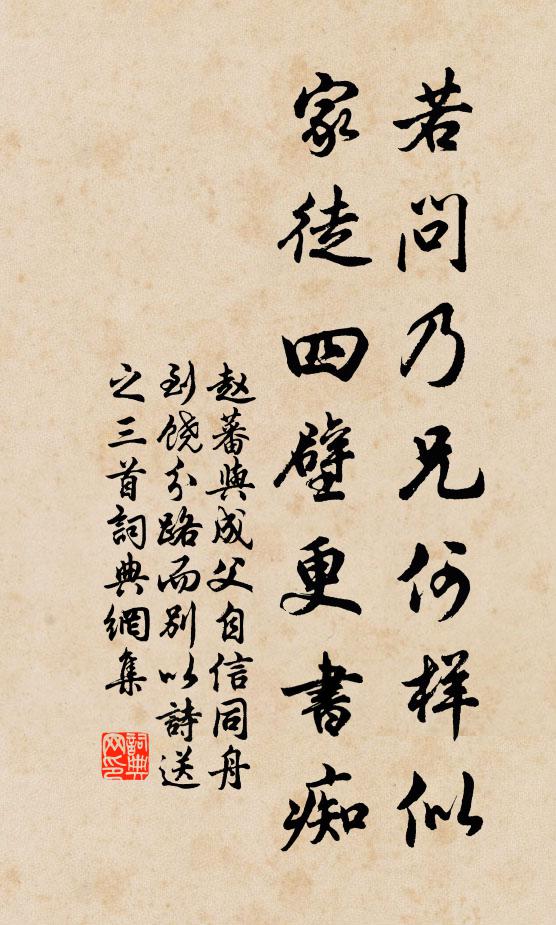 若问乃兄何样似
家徒四壁更書痴
赵蕃與成父自信同舟
到饶分路而别以詩送
之三首詞典網集
詞典网印